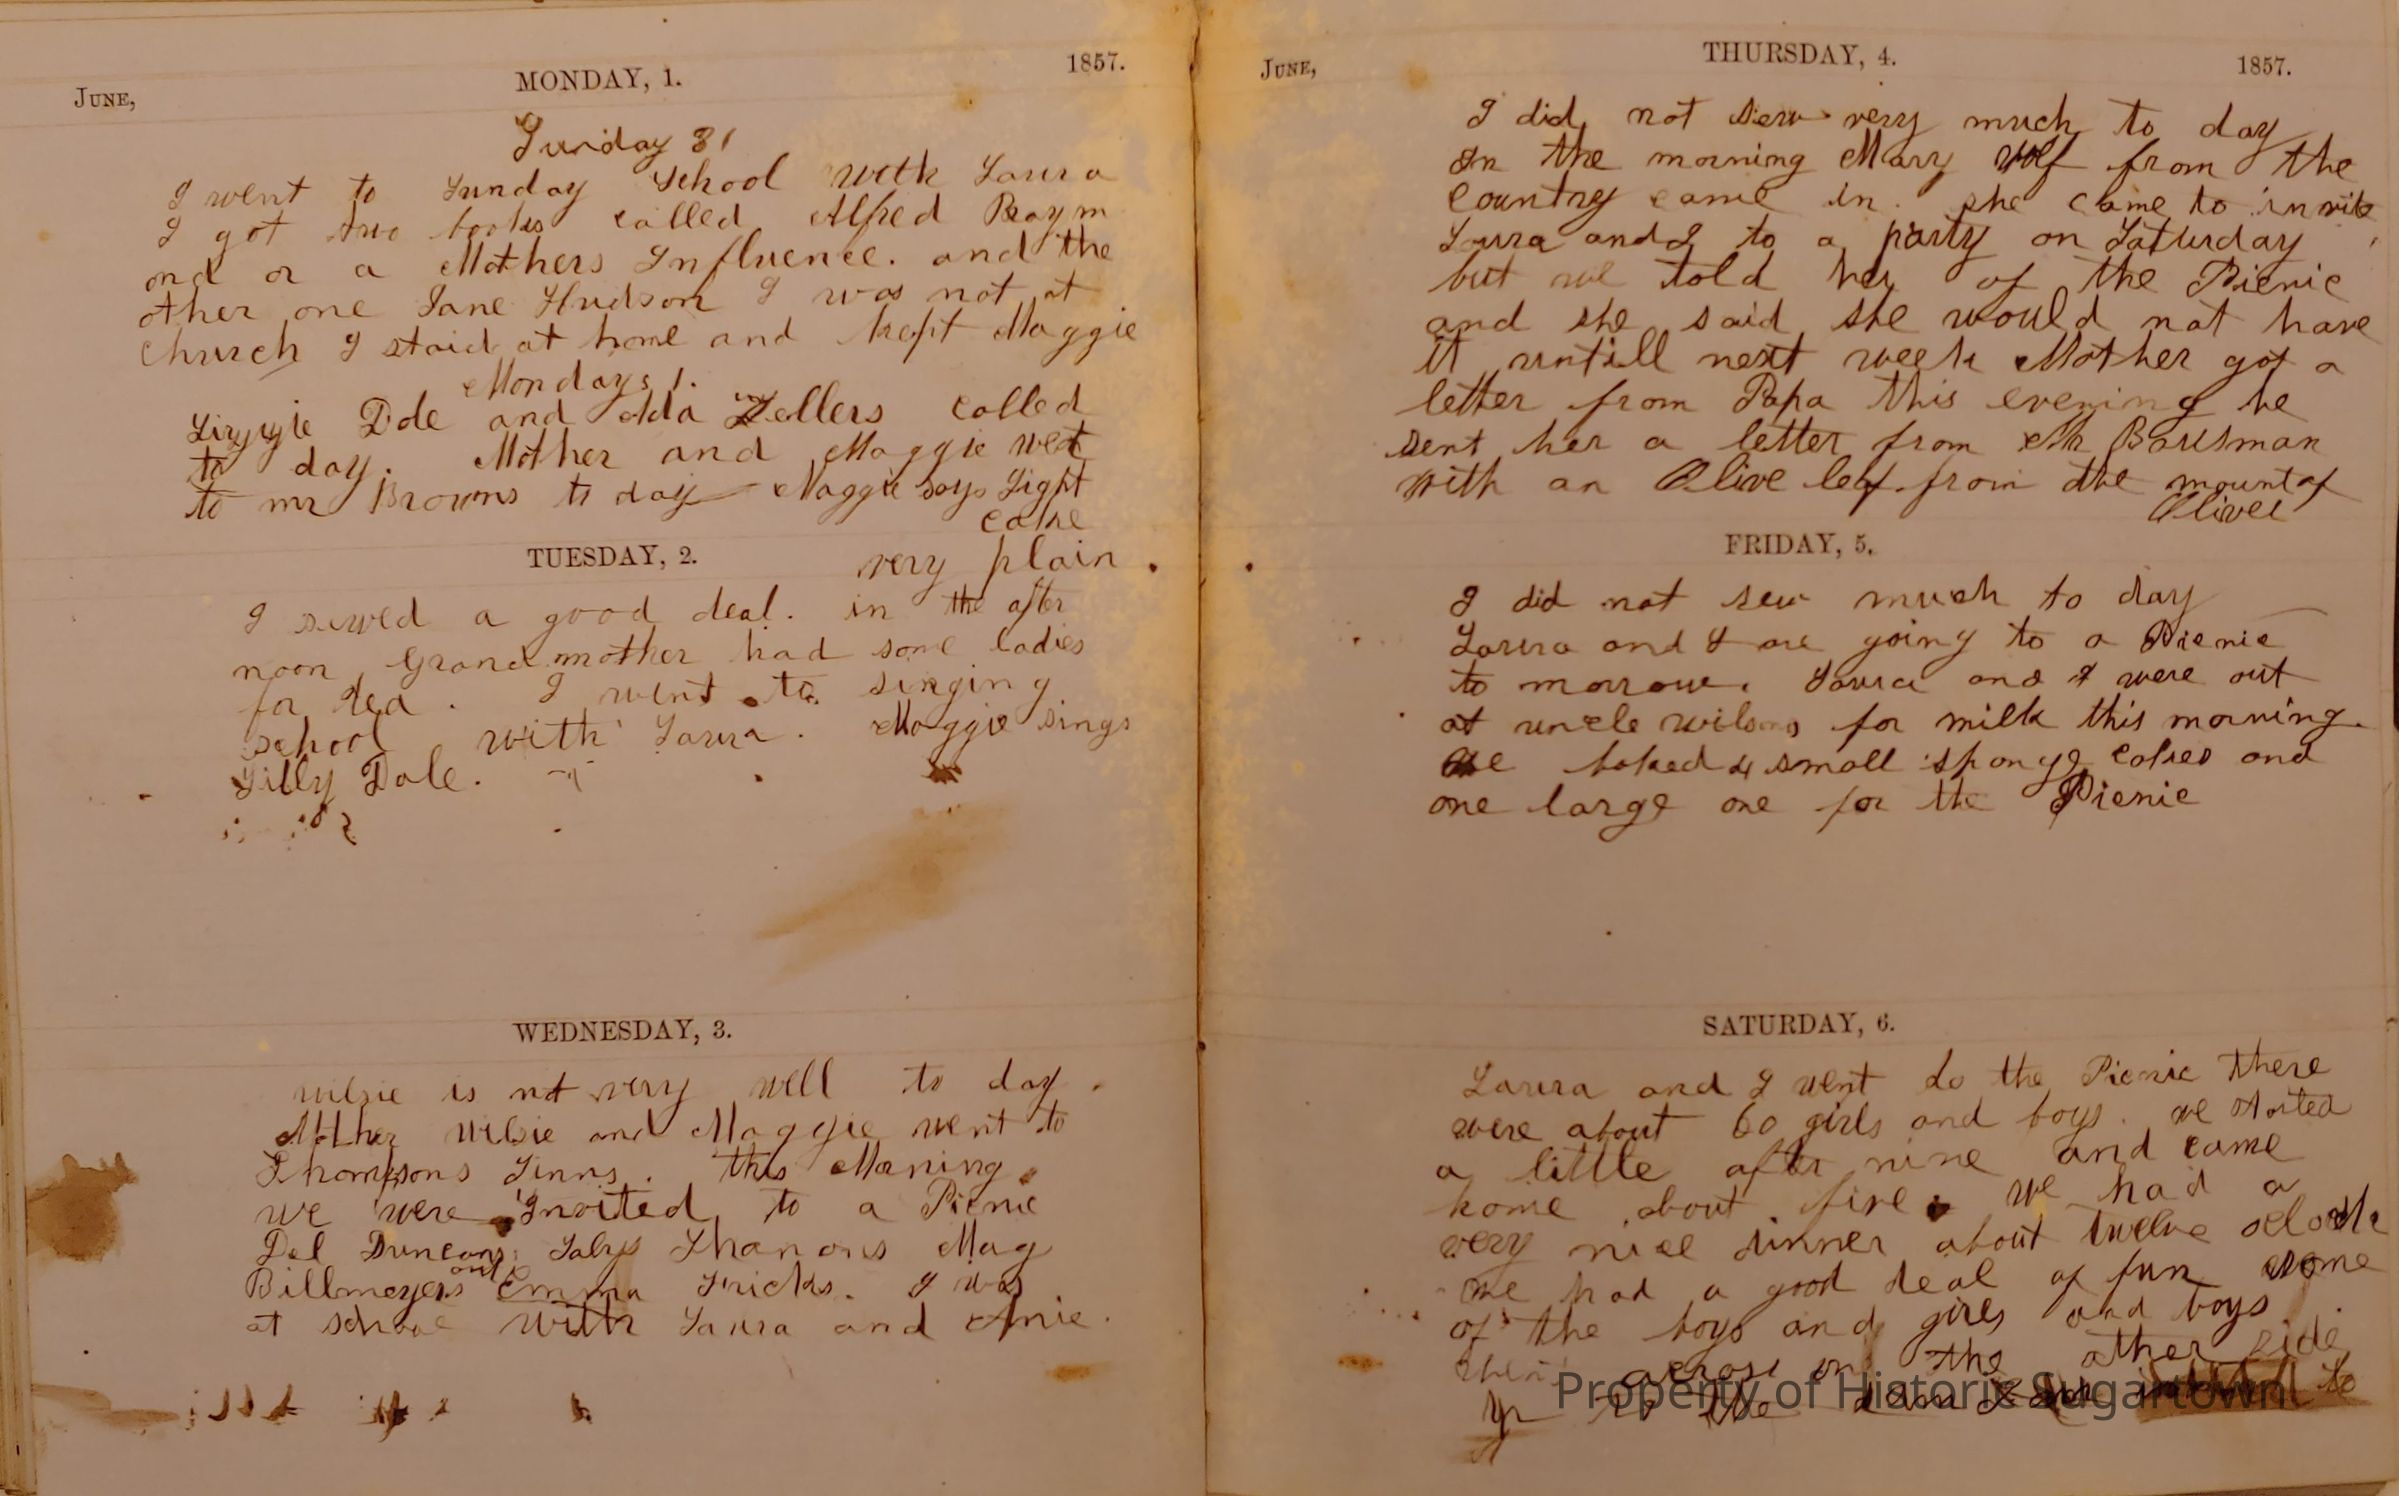 June,
MONDAY, 1.
1857.
Sunday 31
I went to Sunday School with Laura
I got two books called Alfred Raym
ond or a Mothers Influence. and the
other one Jane Hudson I was not at
Church I staid at home and kept Maggie
Mondays 1.
Lizzie Dole and Ada Zellers called
to day. Mother and Maggie went
to mr Browns to day Maggie says Light
cake
very plain.
TUESDAY, 2.
I sewed a good deal. in the after
noon Grandmother had some ladies
for tea. I went to singing
school with Laura. Maggie sings
Lilly Dale.
WEDNESDAY, 3.
Wilsie is not very well to day.
Mother Wilsie and Maggie went to
Thompsons Linns. this Morning
we were Invited to a Picnic
Del Duncans, Shanons Mag
Billmeyers and Emma Fricks. I was
at school with Laura and Anie.
June,
THURSDAY, 4.
1857.
I did not sew very much to day
In the morning Mary Wolf from the
Country came in. she came to invite
Laura and I to a party on Saturday
but we told her of the Picnic
and she said she would not have
it untill next week Mother got a
letter from Papa this evening he
sent her a letter from Mr Bausman
with an Olive leaf from the mount of
Olives
FRIDAY, 5.
I did not sew much to day
Laura and I are going to a Picnic
to morrow. Laura and I were out
at uncle wilsons for milk this morning.
We baked 4 small sponge cakes and
one large one for the Picnic
SATURDAY, 6.
Laura and I went to the Picnic there
were about 60 girls and boys. we started
a little after nine and came
home about five. we had a
very nice dinner about twelve oclock
we had a good deal of fun some
of the boys and girls and boys
went across on the other side
to the dam to
Property of Historic Sugartown